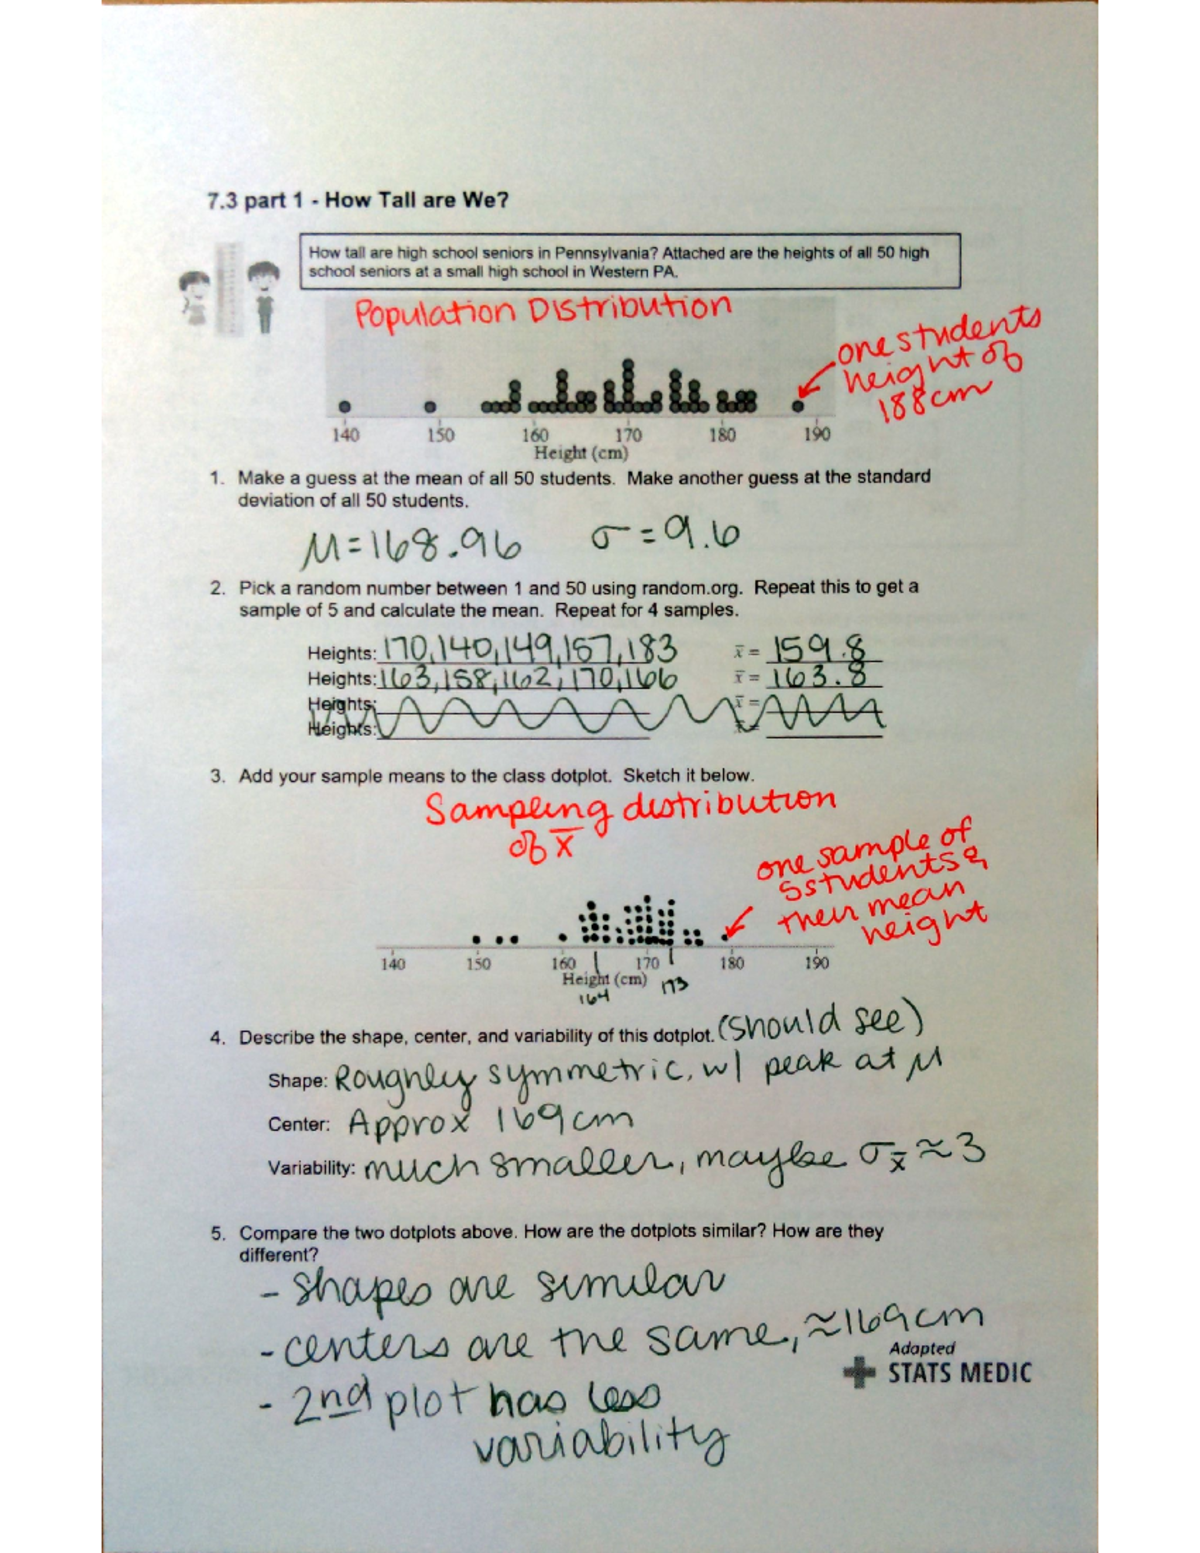 7.3 part 1 - How Tall are We?
How tall are high school seniors in Pennsylvania? Attached are the heights of all 50 high
school seniors at a small high school in Western PA.
Population Distribution
one students
height of
188cm
140 150 160 170 180 190
Height (cm)
1. Make a guess at the mean of all 50 students. Make another guess at the standard
deviation of all 50 students.
μ=168.96 σ=9.6
2. Pick a random number between 1 and 50 using random.org. Repeat this to get a
sample of 5 and calculate the mean. Repeat for 4 samples.
Heights: 170,140,149,157,183 x̄ = 159.8
Heights: 163,158,162,170,166 x̄ = 163.8
Heights: x̄ =
Heights:
3. Add your sample means to the class dotplot. Sketch it below.
Sampling distribution
of x̄
one sample of
5 students &
their mean
height
140 150 160 170 180 190
Height (cm)
164 173
4. Describe the shape, center, and variability of this dotplot. (should see)
Shape: Roughly symmetric, w/ peak at μ
Center: Approx 169cm
Variability: much smaller, maybe σx̄ ≈ 3
5. Compare the two dotplots above. How are the dotplots similar? How are they
different?
- shapes are similar
- centers are the same, ≈169cm
- 2nd plot has less
variability
Adapted
STATS MEDIC